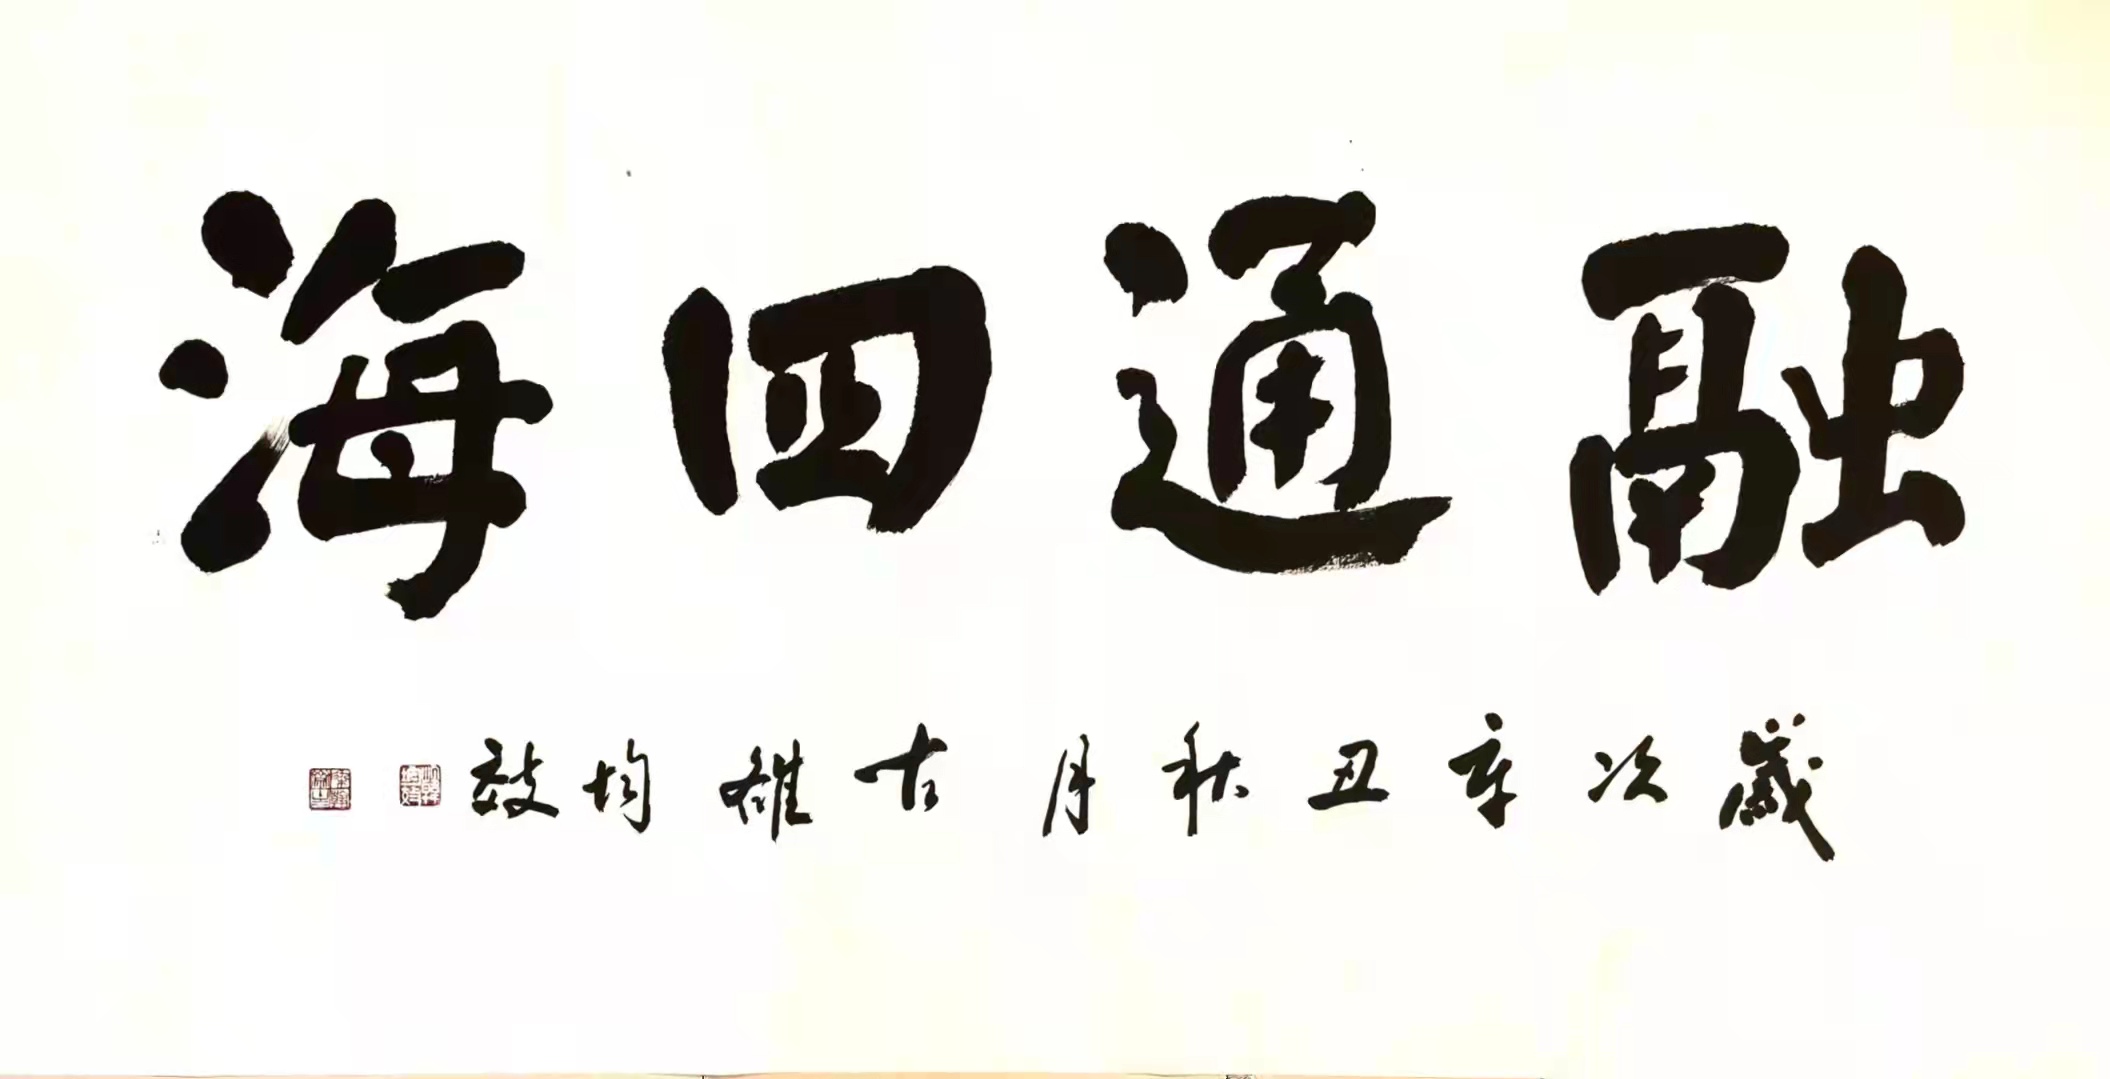 融通四海
歲次辛丑秋月古雒均敬